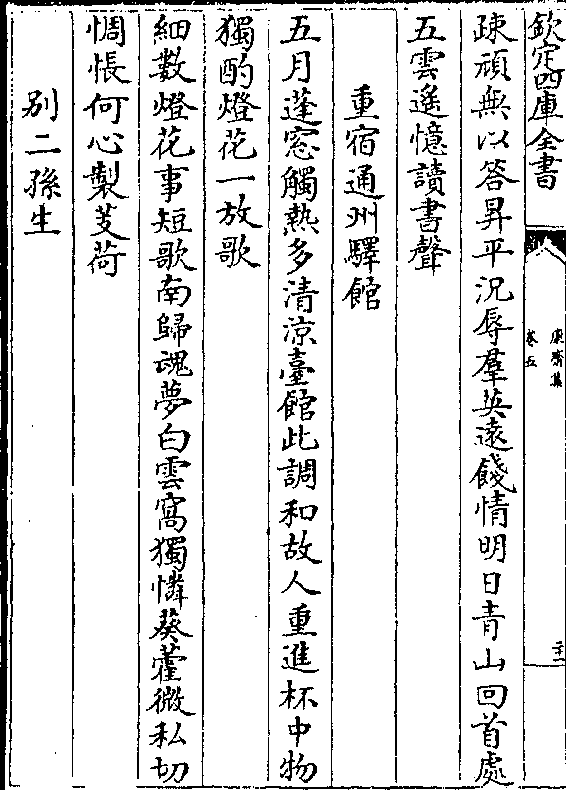 欽定四庫全書
康齋集
卷五
二十一
疎頑無以答昇平況辱羣英遠餞情明日青山回首處
五雲遙憶讀書聲
重宿通州驛館
五月蓬窓觸熱多清涼臺館此調和故人重進杯中物
獨酌燈花一放歌
細數燈花事短歌南歸魂夢白雲窩獨憐葵藿微私切
惆悵何心製芰荷
別二孫生